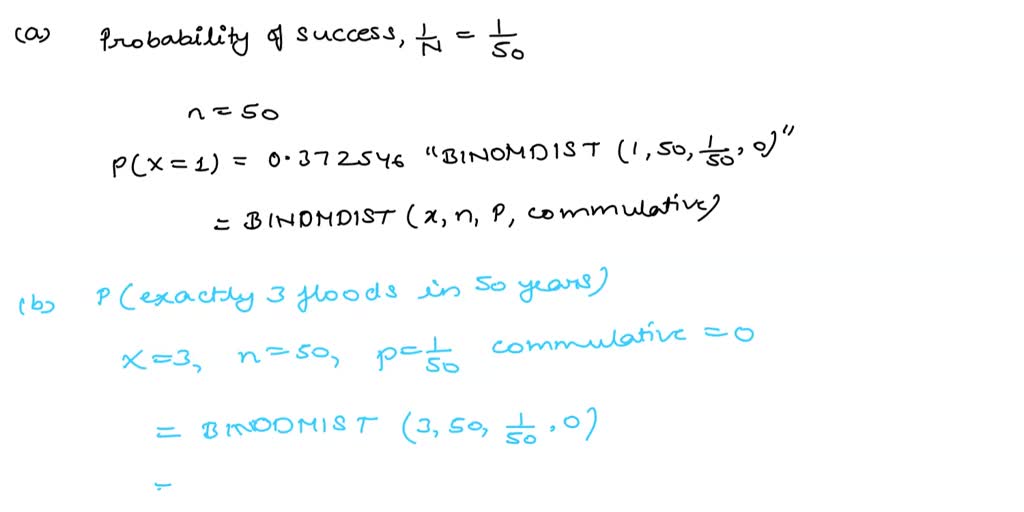 (a) Probability of success, 1/N = 1/50
n = 50
P(X=1) = 0.372546 "BINOMDIST (1, 50, 1/50, 0)"
= BINOMDIST (x, n, P, commulative)
(b) P (exactly 3 floods in 50 years)
X=3, n=50, p=1/50 commulative = 0
= BINODMIST (3, 50, 1/50, 0)
=